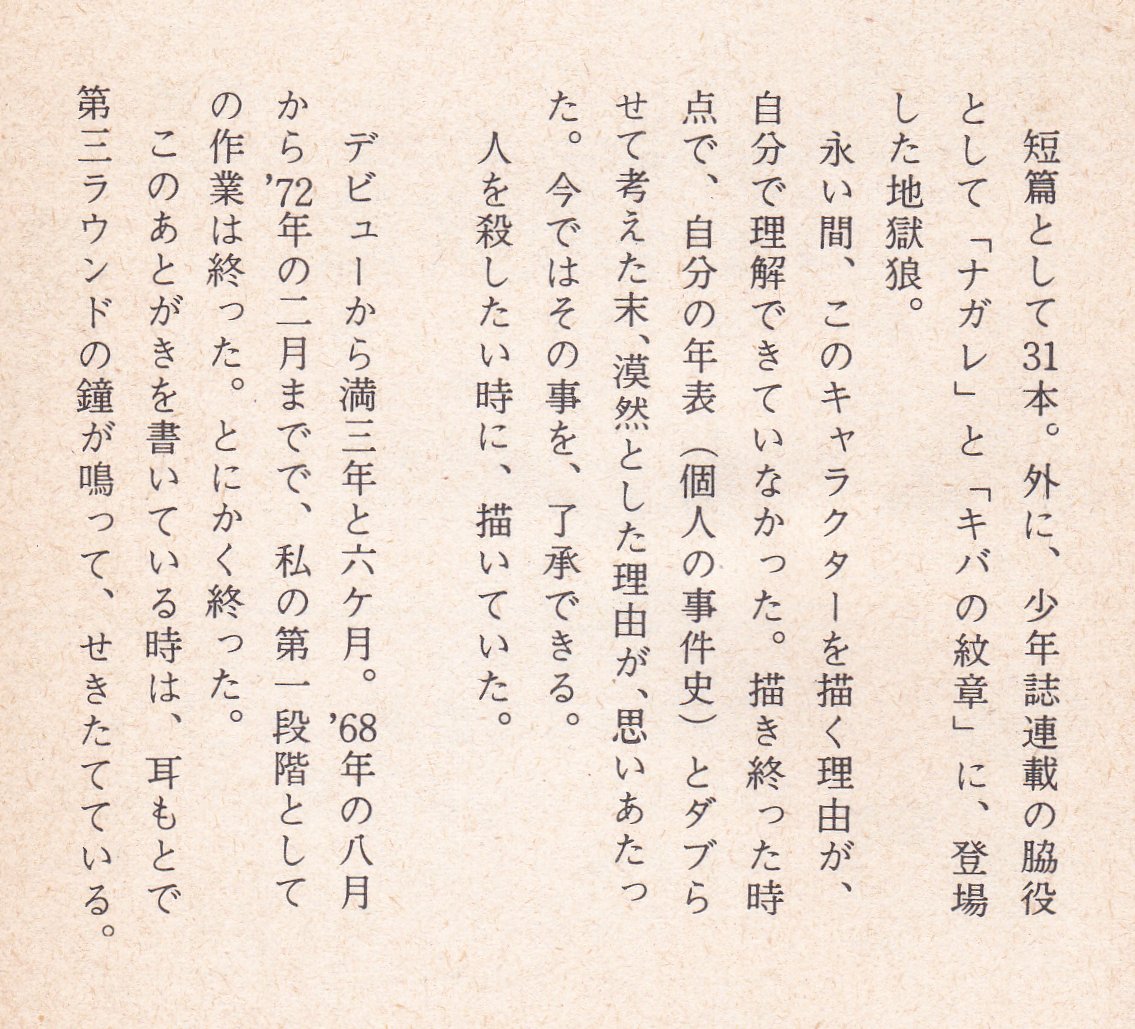 短篇として31本。外に、少年誌連載の脇役
として「ナガレ」と「キバの紋章」に、登場
した地獄狼。
永い間、このキャラクターを描く理由が、
自分で理解できていなかった。描き終った時
点で、自分の年表（個人の事件史）とダブら
せて考えた末、漠然とした理由が、思いあたっ
た。今ではその事を、了承できる。
人を殺したい時に、描いていた。
デビューから満三年と六ケ月。’68年の八月
から’72年の二月までで、私の第一段階として
の作業は終った。とにかく終った。
このあとがきを書いている時は、耳もとで
第三ラウンドの鐘が鳴って、せきたてている。